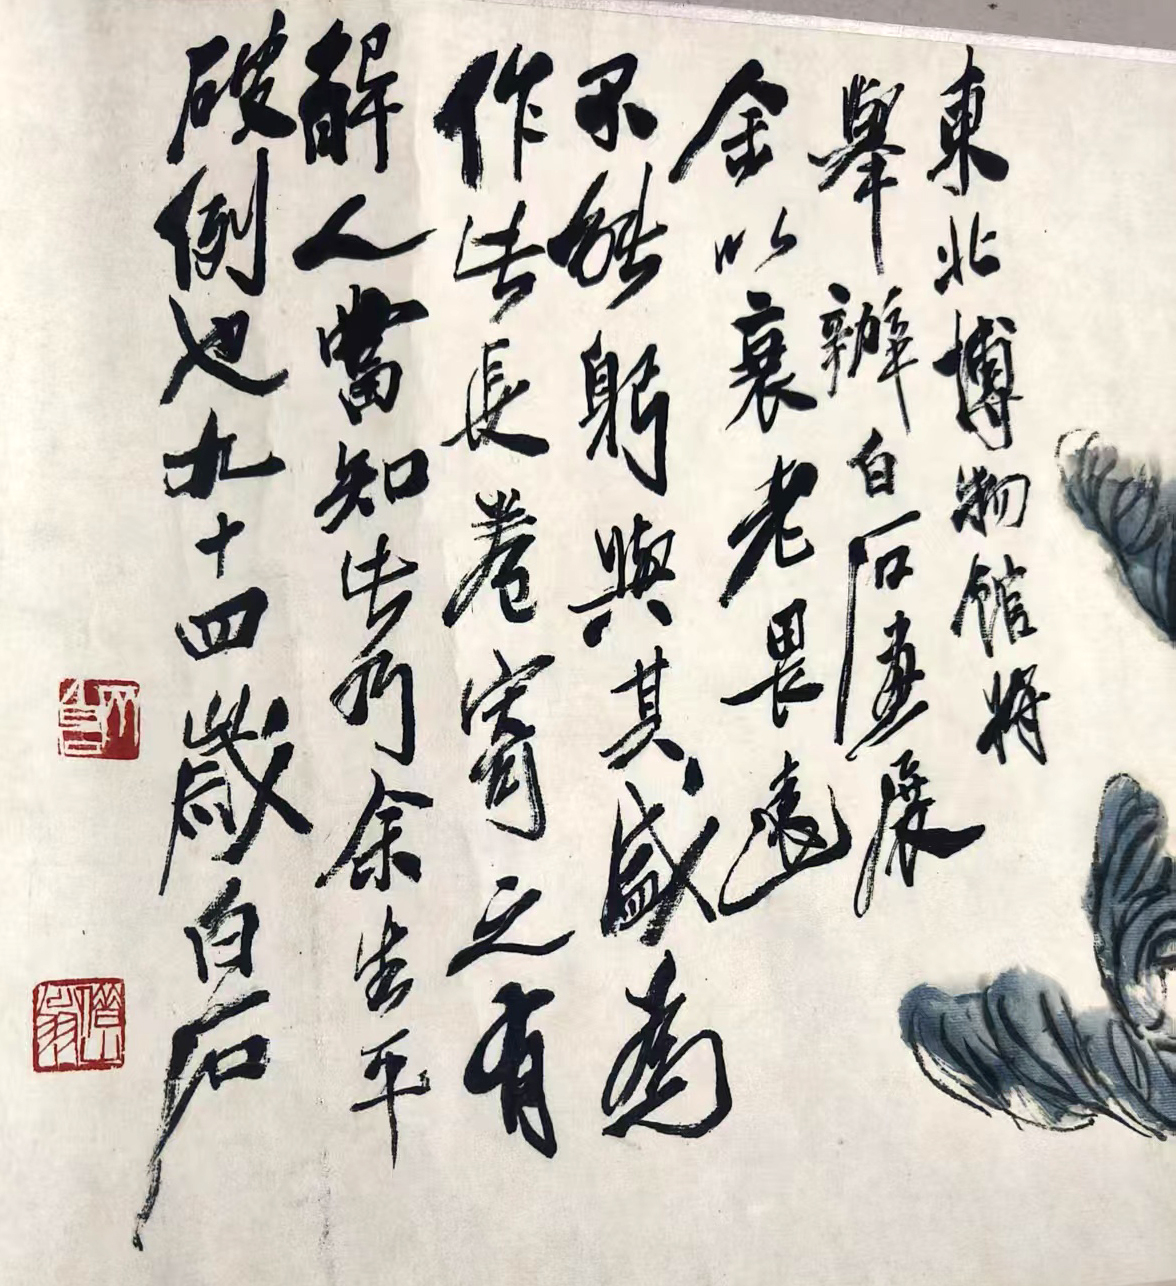 東北博物館將
舉辦白石畫展
余以衰老畏遠
不能躬與其盛為
作此長卷寄之有
解人當知此乃余生平
破例也九十四歲白石
借山翁